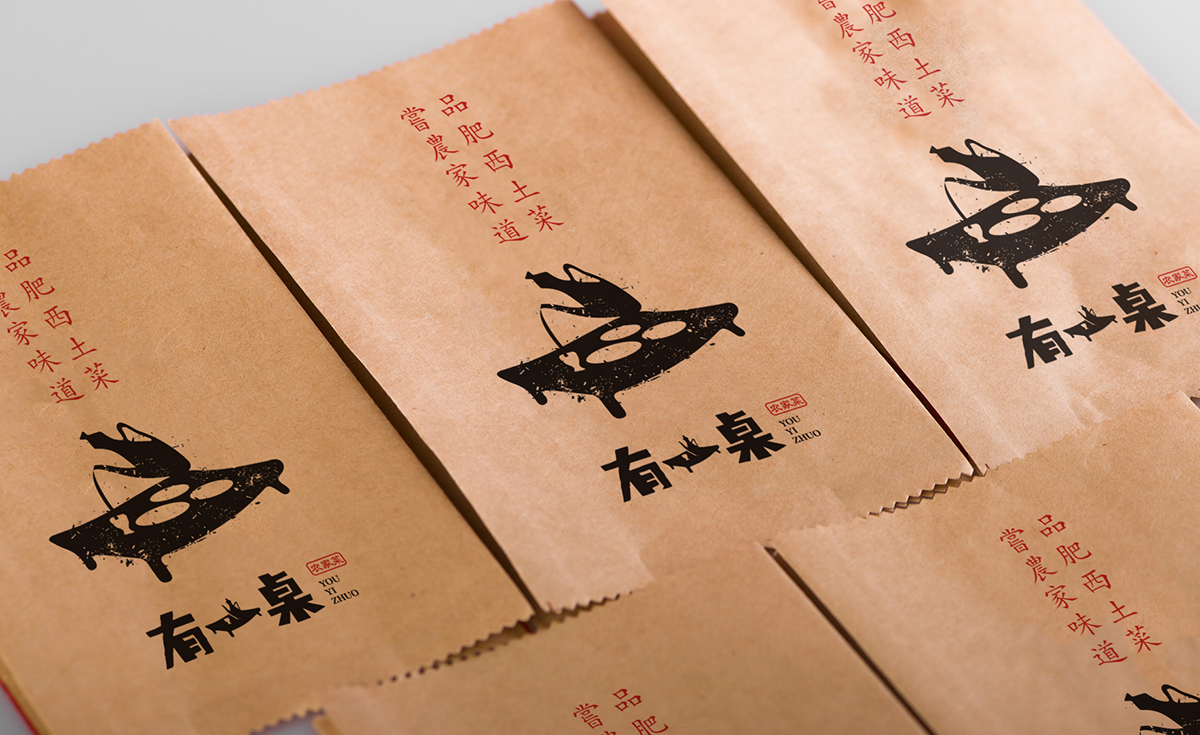 品肥西土菜
農家味道
有一桌
农家菜
YOU
YI
ZHUO
品肥西土菜
嘗農家味道
有一桌
农家菜
YOU
YI
ZHUO
肥西土菜
嘗農家味道
有一桌
农家菜
YOU
YI
品肥西土菜
嘗農家味道
品肥
嘗